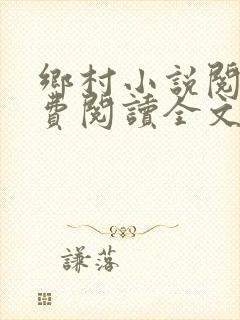 鄉村小說閱
費閱讀全文
謙落